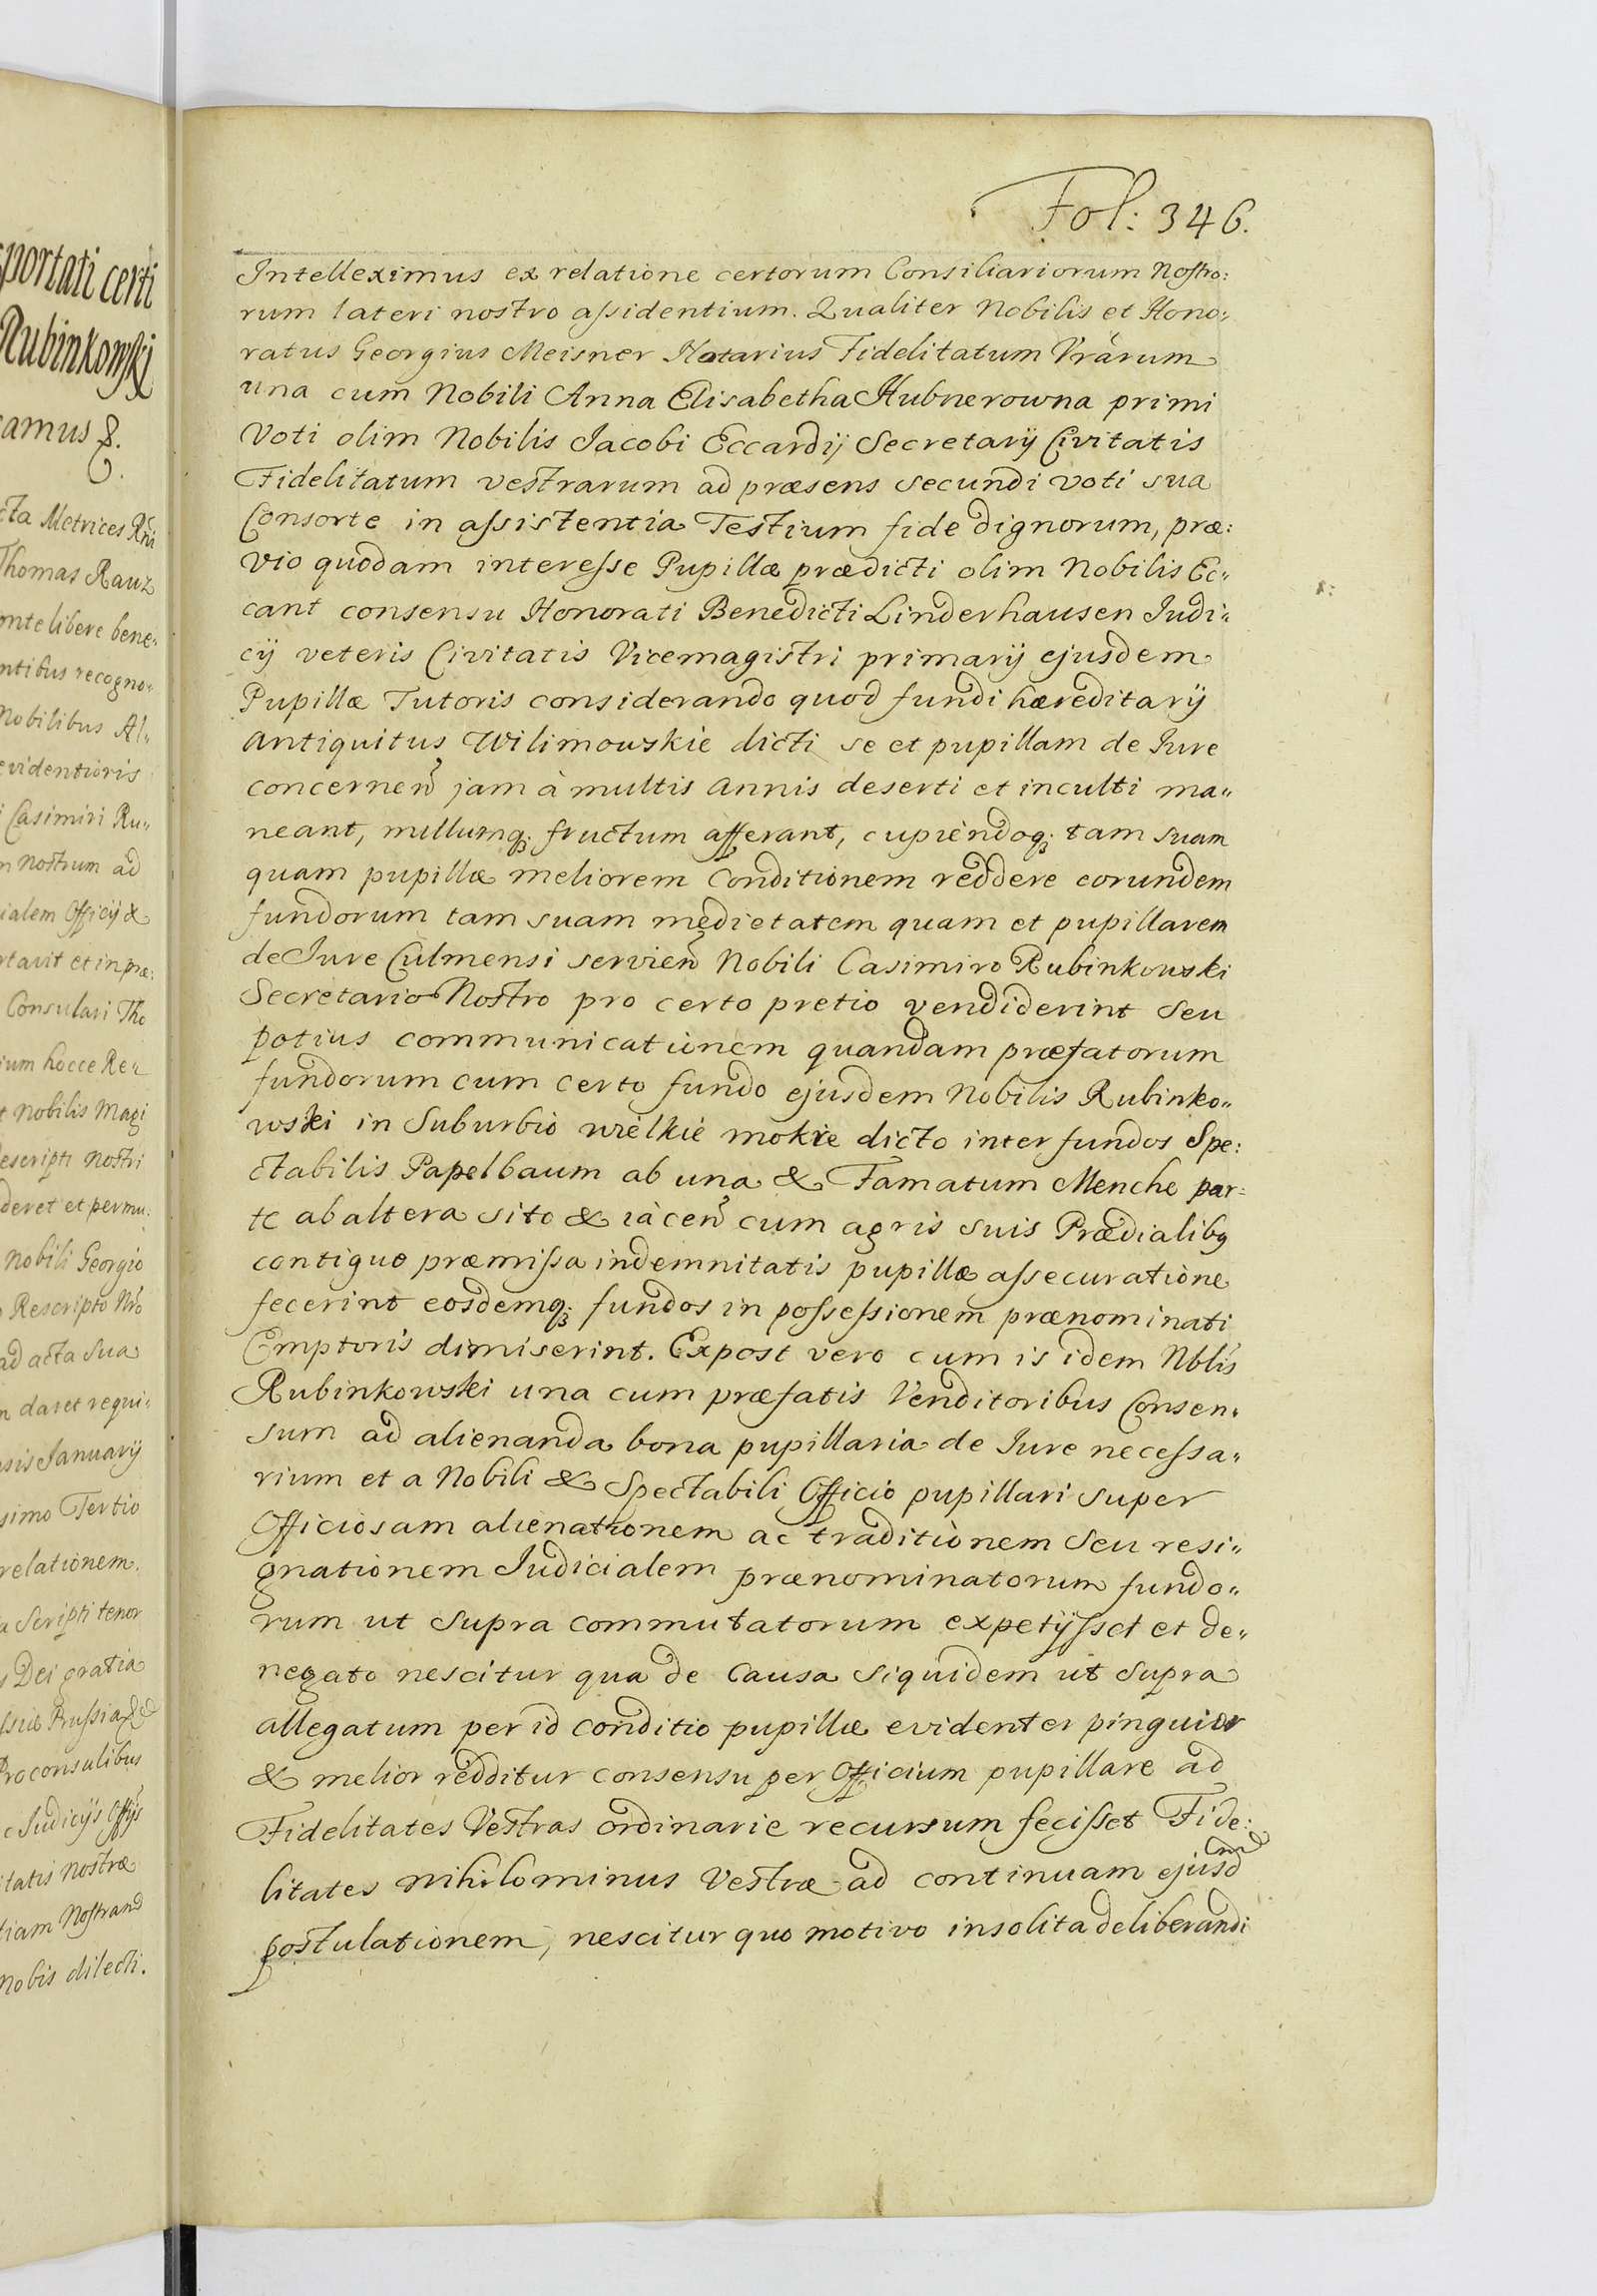 portati certi
Rubinkowski
camus &.
cta Metrices Rñi
Thomas Rauz
onte libere bene„
ntibus recogno„
Nobilibus Al„
evidentioris
i Casimiri Ru„
m nostrum ad
ialem Officij &
rtavit et in præ:
Consulari Tho
ium hocce Re„
t nobilis Magi
escripti nostri
deret et permu:
nobili Georgio
Rescripto Nr̃o
ad acta sua
n daret requi„
sis Januarij
simo Tertio
relationem.
a Scripti tenor
s Dei gratia
ssiæ Prussiæ
Proconsulibus
c Judicijs Offijs
itatis nostræ
tiam Nostram
nobis dilecti.
Fol: 346.
Intelleximus ex relatione certorum Consiliariorum Nostro:
rum lateri nostro assidentium. Qualiter Nobilis et Hono„
ratus Georgius Meisner Notarius Fidelitatum Vrarum
una cum Nobili Anna Elisabetha Hubnerowna primi
Voti olim Nobilis Jacobi Eccardij Secretarij Civitatis
Fidelitatum vestrarum ad præsens secundi voti sua
Consorte in assistentia Testium fide dignorum, præ:
vio quodam interesse Pupillæ prædicti olim Nobilis Ec„
cant consensu Honorati Benedicti Linderhausen Judi„
cij veteris Civitatis Vicemagistri primarij ejusdem
Pupillæ Tutoris considerando quod fundi hæreditarij
Antiquitus Wilimowskie dicti se et pupillam de Jure
concernen̄ jam à multis Annis deserti et inculti ma„
neant, nullumq; fructum afferant, cupiendoq; tam suam
quam pupillæ meliorem Conditionem reddere eorundem
fundorum tam suam medietatem quam et pupillarem
de Jure Culmensi servien̄ Nobili Casimiro Rubinkowski
Secretario Nostro pro certo pretio vendiderint seu
potius communicationem quandam præfatorum
fundorum cum certo fundo ejusdem Nobilis Rubinko„
wski in Suburbio wielkie mokre dicto inter fundos Spe:
ctabilis Papelbaum ab una & Famatum Menche par:
te ab altera sito & iacen̄ cum agris suis Prædialibq
contiguo præmissa indemnitatis pupillæ assecuratione
fecerint eosdemq; fundos in possessionem prænominati
Emptoris dimiserint. Expost vero cum is idem Nblis
Rubinkowski una cum præfatis Venditoribus Consen„
sum ad alienanda bona pupillaria de Jure necessa„
rium et a Nobili & Spectabili Officio pupillari super
Officiosam alienationem ac traditionem seu resi„
gnationem Judicialem prænominatorum fundo„
rum ut supra commutatorum expetijsset et de„
negato nescitur qua de Causa siquidem ut supra
allegatum per id conditio pupillæ evidenter pinguior
& melior redditur consensu per Officium pupillare ad
Fidelitates Vestras ordinarie recursum fecisset Fide:
litates nihilominus Vestræ ad continuam ejusdem
postulationem, nescitur quo motivo insolita deliberandi